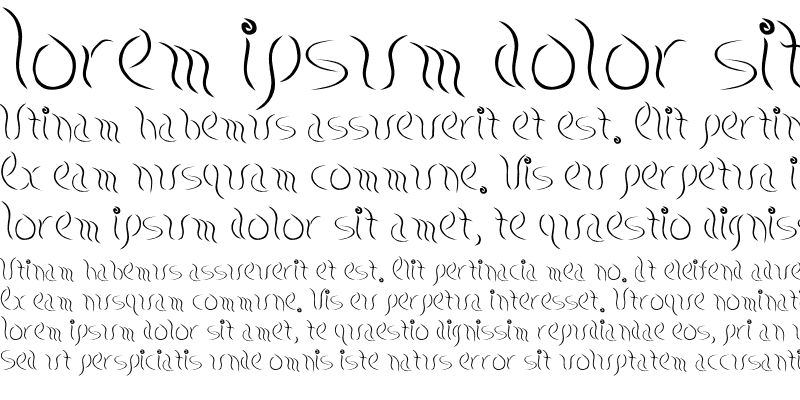 lorem ipsum dolor sit
Utinam habemus assueverit et est. Elit pertin
Ex eam nusquam commune. Vis eu perpetua i
lorem ipsum dolor sit amet, te quaestio digniss
Utinam habemus assueverit et est. Elit pertinacia mea no. At eleifend adve
Ex eam nusquam commune. Vis eu perpetua interesset. Utroque nominati
lorem ipsum dolor sit amet, te quaestio dignissim repudiandae eos, pri an v
Sed ut perspiciatis unde omnis iste natus error sit voluptatem accusanti